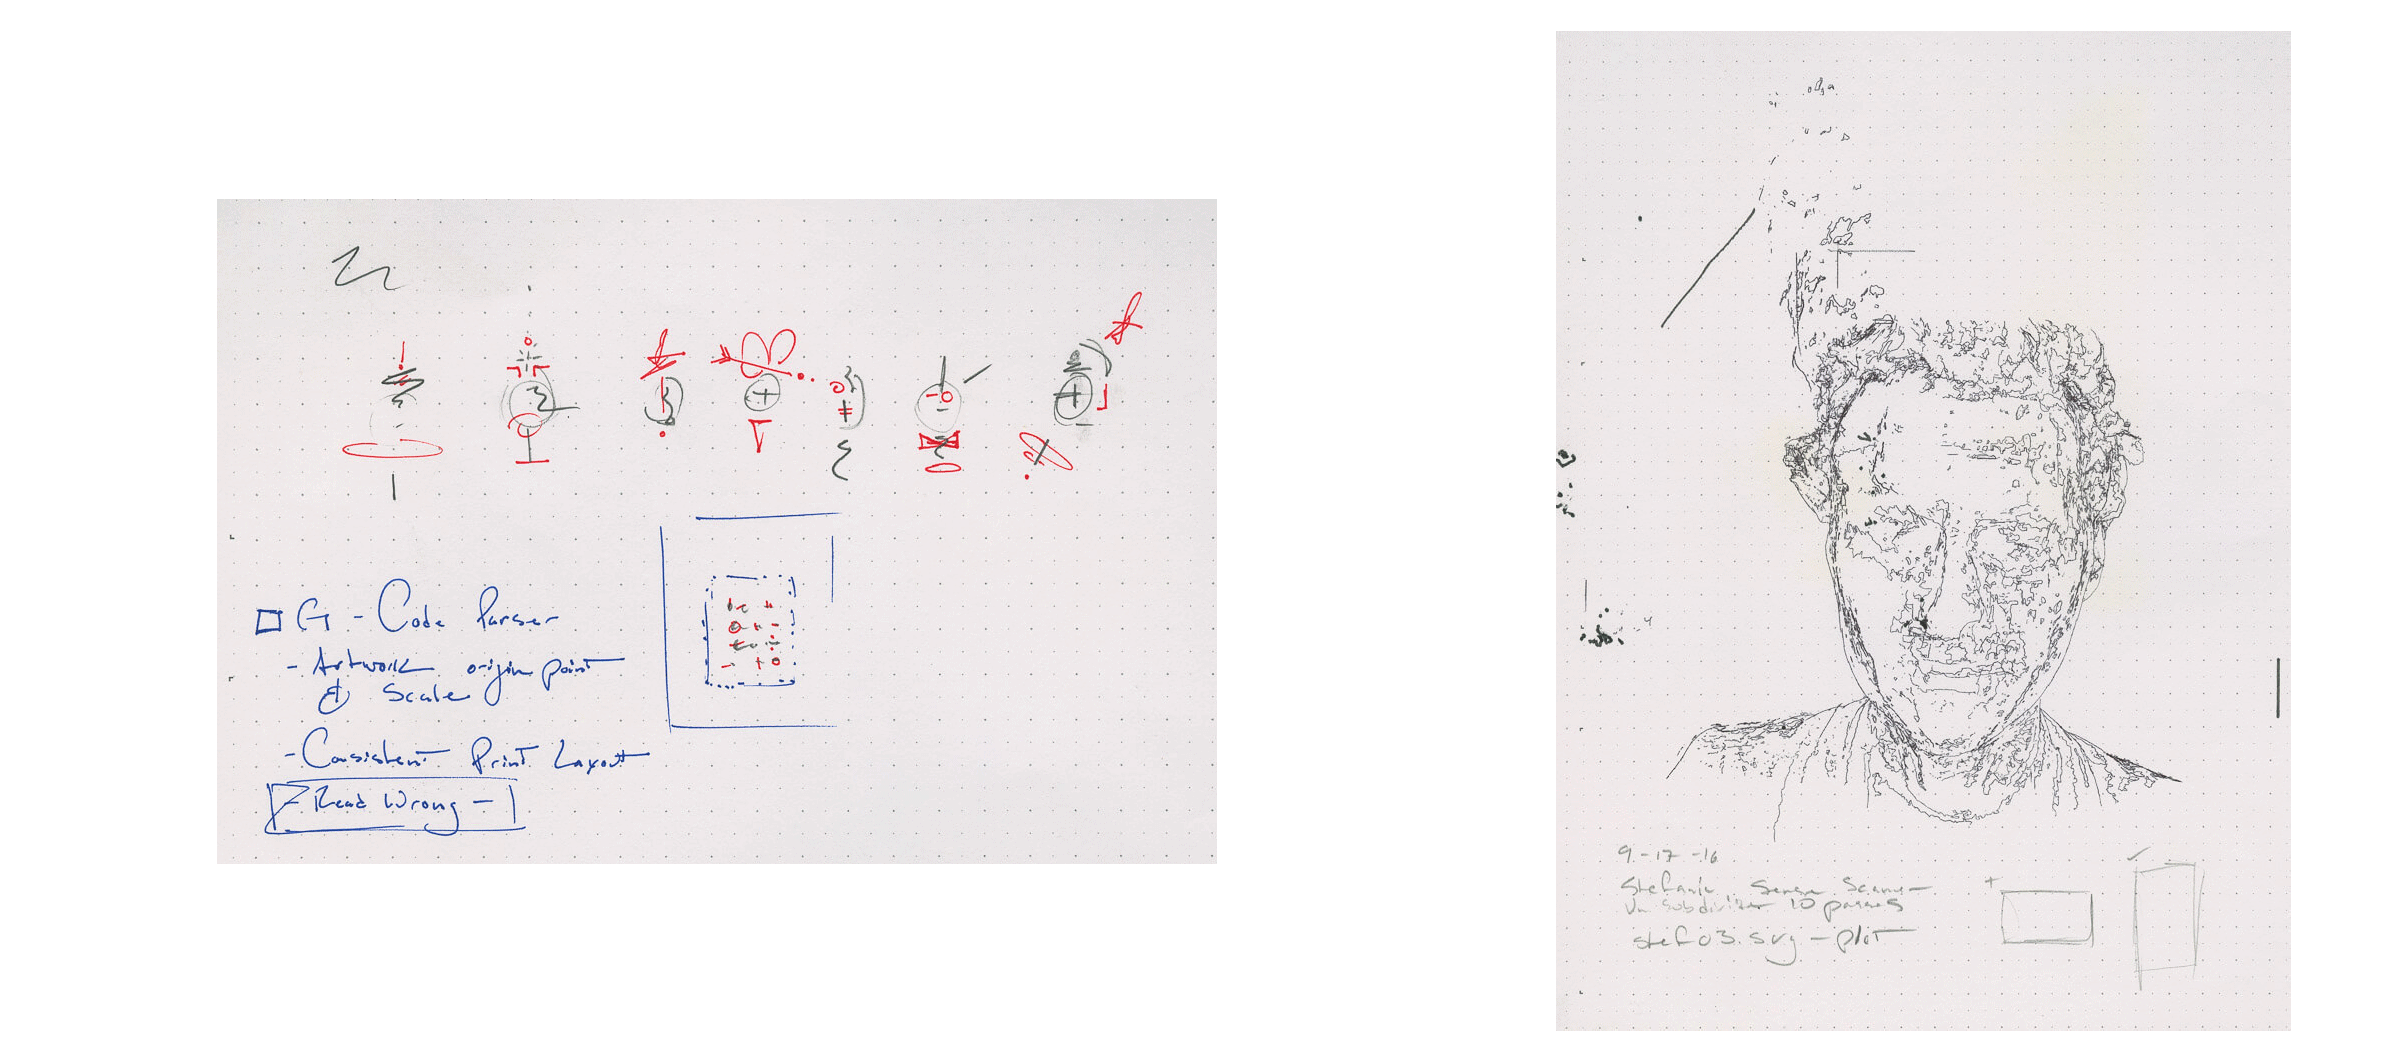 G-Code Parser
- Artwork origin point
& Scale
- Consistent Print Layout
Read Wrong -
9-17-16
Stefanie Sense Scans -
subdivider 10 passes
stef03.svg - plot